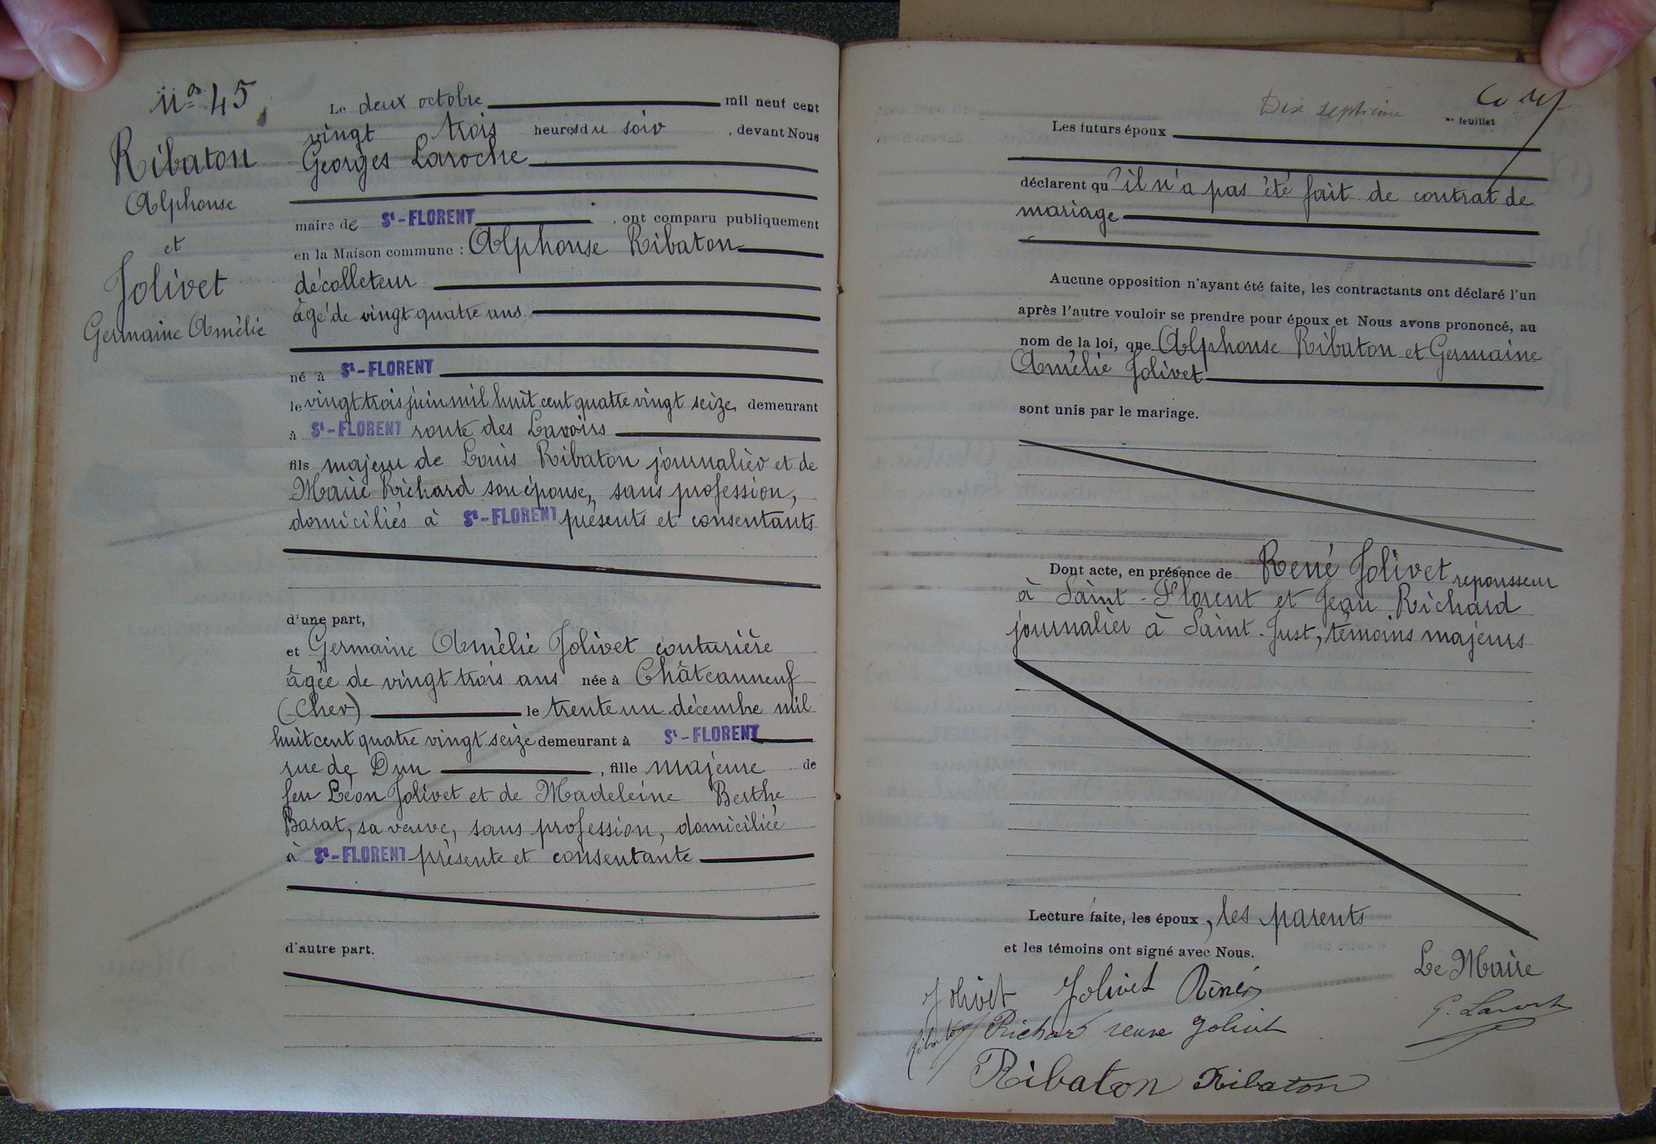 Nº 45
Ribaton
Alphonse
et
Jolivet
Germaine Amélie
Le deux octobre mil neuf cent
vingt trois heures du soir, devant Nous
Georges Laroche
maire de St-FLORENT, ont comparu publiquement
en la Maison commune : Alphonse Ribaton
décolleteur
âgé de vingt quatre ans
né à St-FLORENT
le vingt trois juin mil huit cent quatre vingt seize, demeurant
à St-FLORENT route des Lavoirs
fils majeur de Louis Ribaton journalier et de
Marie Richard son épouse, sans profession,
domiciliés à St-FLORENT présents et consentants
d'une part,
et Germaine Amélie Jolivet couturière
âgée de vingt trois ans née à Châteauneuf
(Cher) le trente un décembre mil
huit cent quatre vingt seize demeurant à St-FLORENT
rue de Dun, fille majeure de
feu Léon Jolivet et de Madeleine Berthe
Barat, sa veuve, sans profession, domiciliée
à St-FLORENT présente et consentante
d'autre part.
Dix septième
feuillet
Les futurs époux
déclarent qu'il n'a pas été fait de contrat de
mariage
Aucune opposition n'ayant été faite, les contractants ont déclaré l'un
après l'autre vouloir se prendre pour époux et Nous avons prononcé, au
nom de la loi, que Alphonse Ribaton et Germaine
Amélie Jolivet
sont unis par le mariage.
Dont acte, en présence de René Jolivet repousseur
à Saint-Florent et Jean Richard
journalier à Saint-Just, témoins majeurs
Lecture faite, les époux, les parents
et les témoins ont signé avec Nous.
Le Maire
Jolivet Jolivet René
G. Laroche
Ribaton Richard veuve Jolivet
Ribaton Ribaton